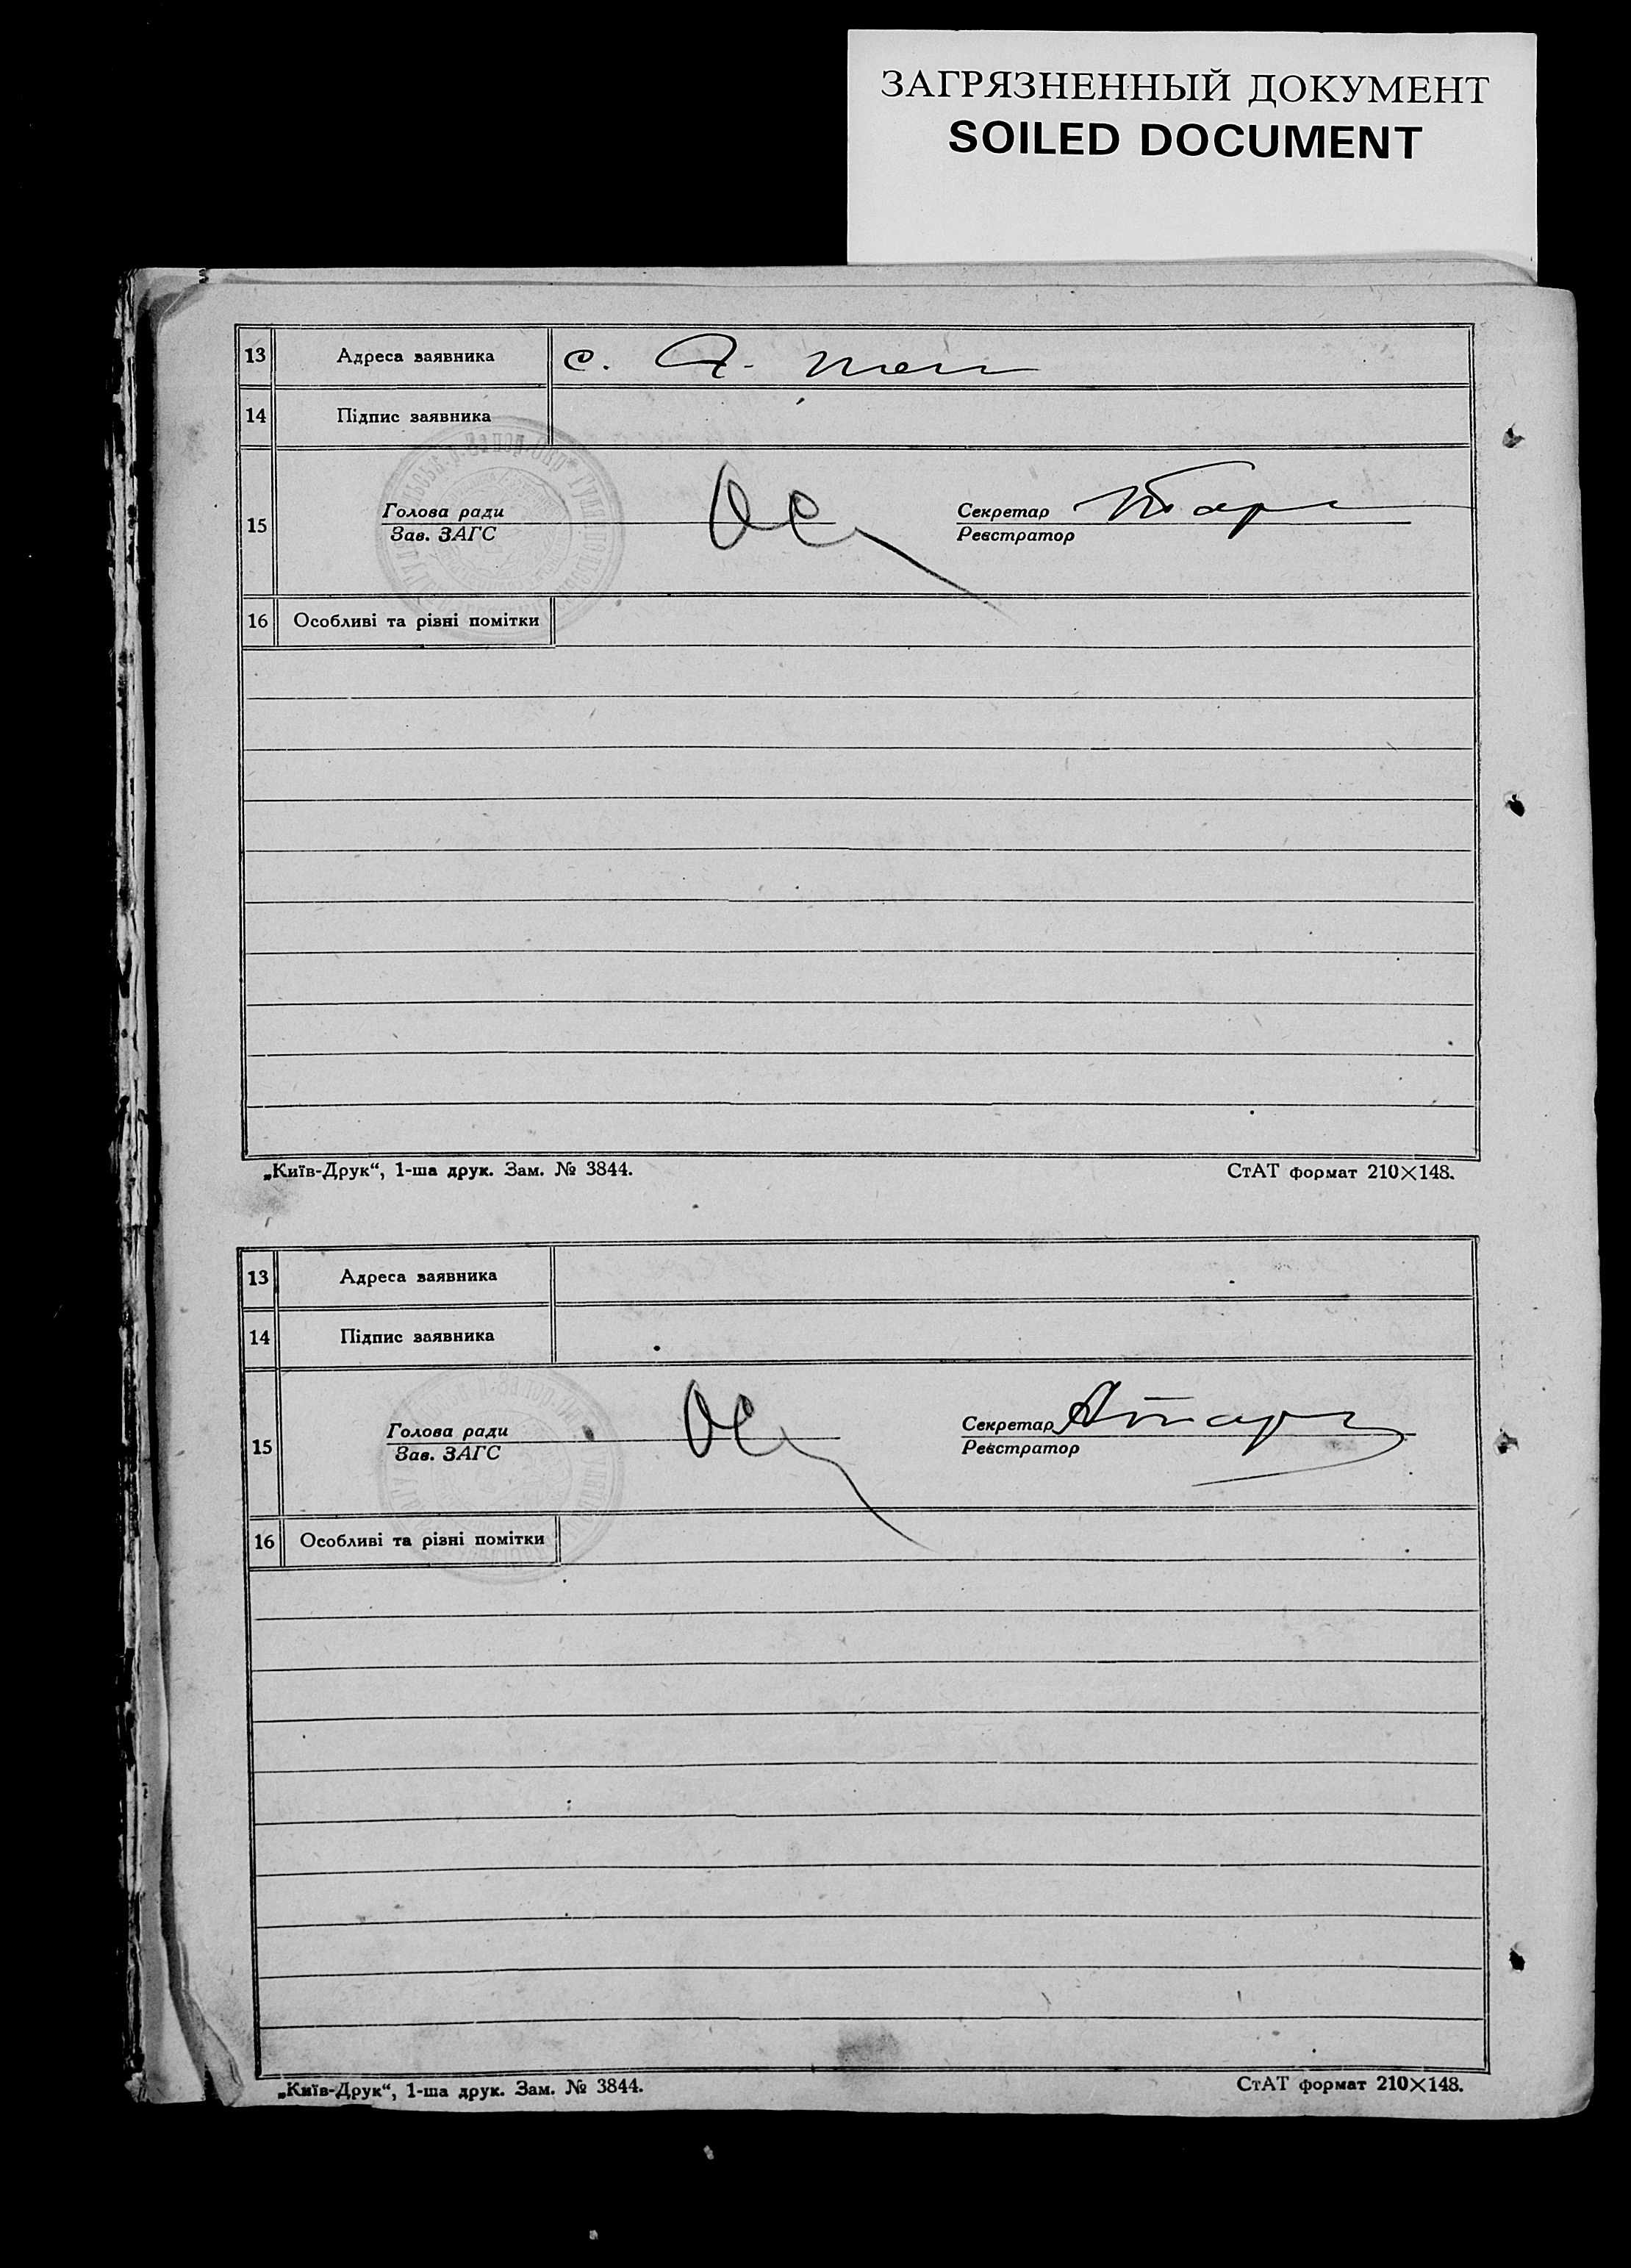 ЗАГРЯЗНЕННЫЙ ДОКУМЕНТ
SOILED DOCUMENT
13 Адреса заявника с.
14 Підпис заявника
15 Голова ради Секретар
Зав. ЗАГС Реєстратор
16 Особливі та різні помітки
„Київ-Друк“, 1-ша друк. Зам. № 3844. СтАТ формат 210×148.
13 Адреса заявника
14 Підпис заявника
15 Голова ради Секретар
Зав. ЗАГС Реєстратор
16 Особливі та різні помітки
„Київ-Друк“, 1-ша друк. Зам. № 3844. СтАТ формат 210×148.